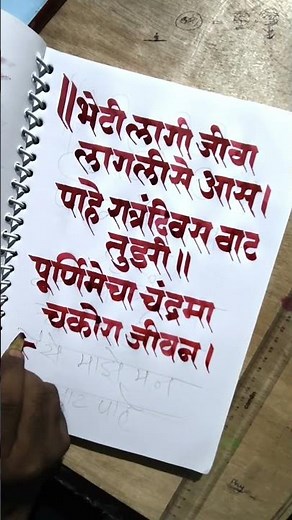 ॥भेटी लागी जीवा
लागलीसे आस।
पाहे रात्रंदिवस वाट
तुझी॥
पूर्णिमेचा चंद्रमा
चकोरा जीवन।
माझे मन
वाट पाहे